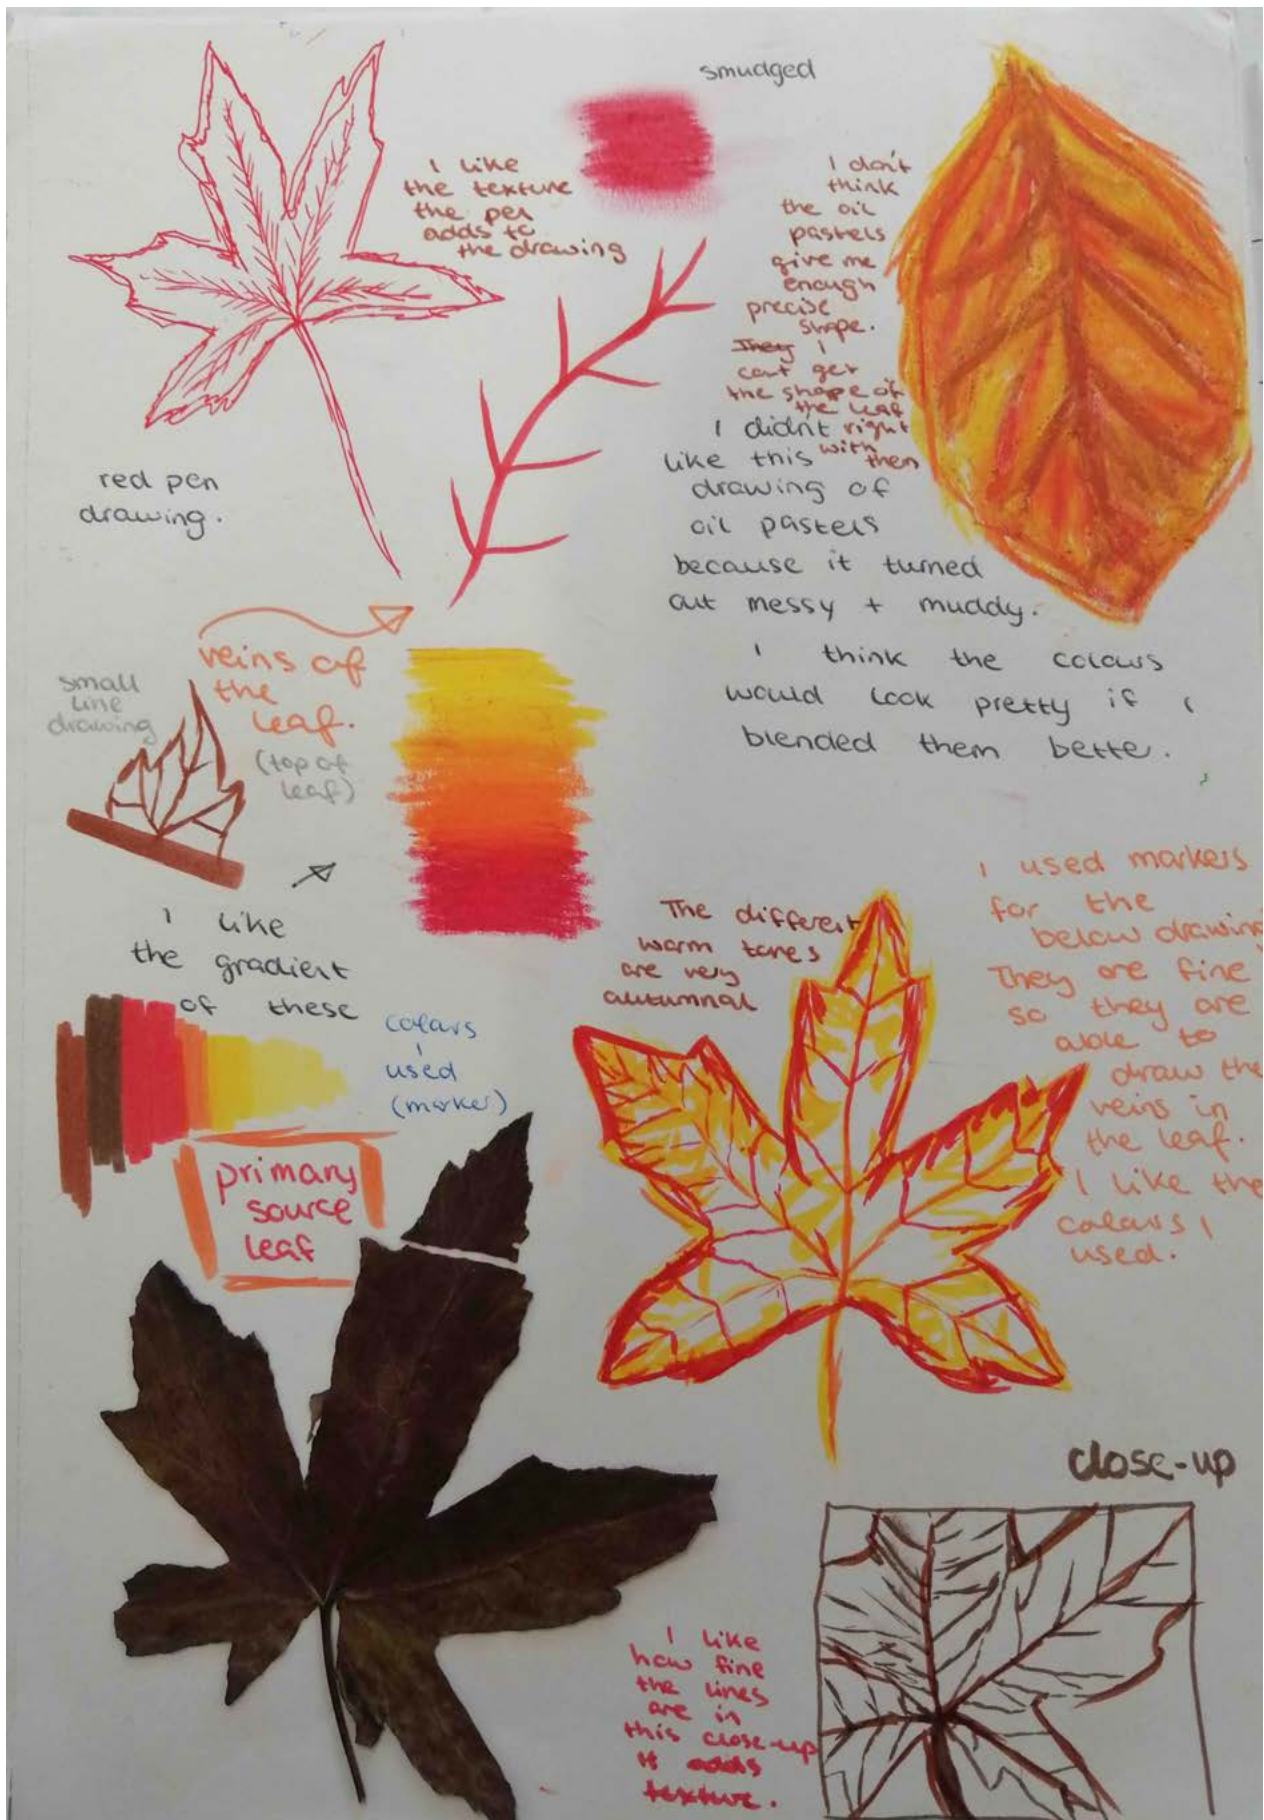 smudged
I like
the texture
the pen
adds to
the drawing
I don't
think
the oil
pastels
give me
enough
precise
shape.
They I
can't get
the shape of
the leaf
right
with
them
I didn't
like this
drawing of
oil pastels
because it turned
out messy + muddy.
I think the colours
would look pretty if I
blended them better.
red pen
drawing.
veins of
the
leaf.
(top of
leaf)
small
line
drawing
I like
the gradient
of these
colours
I
used
(marker)
The different
warm tones
are very
autumnal
I used markers
for the
below drawing
They are fine
so they are
able to
draw the
veins in
the leaf.
I like the
colours I
used.
primary
source
leaf
close-up
I like
how fine
the lines
are in
this close-up
it adds
texture.